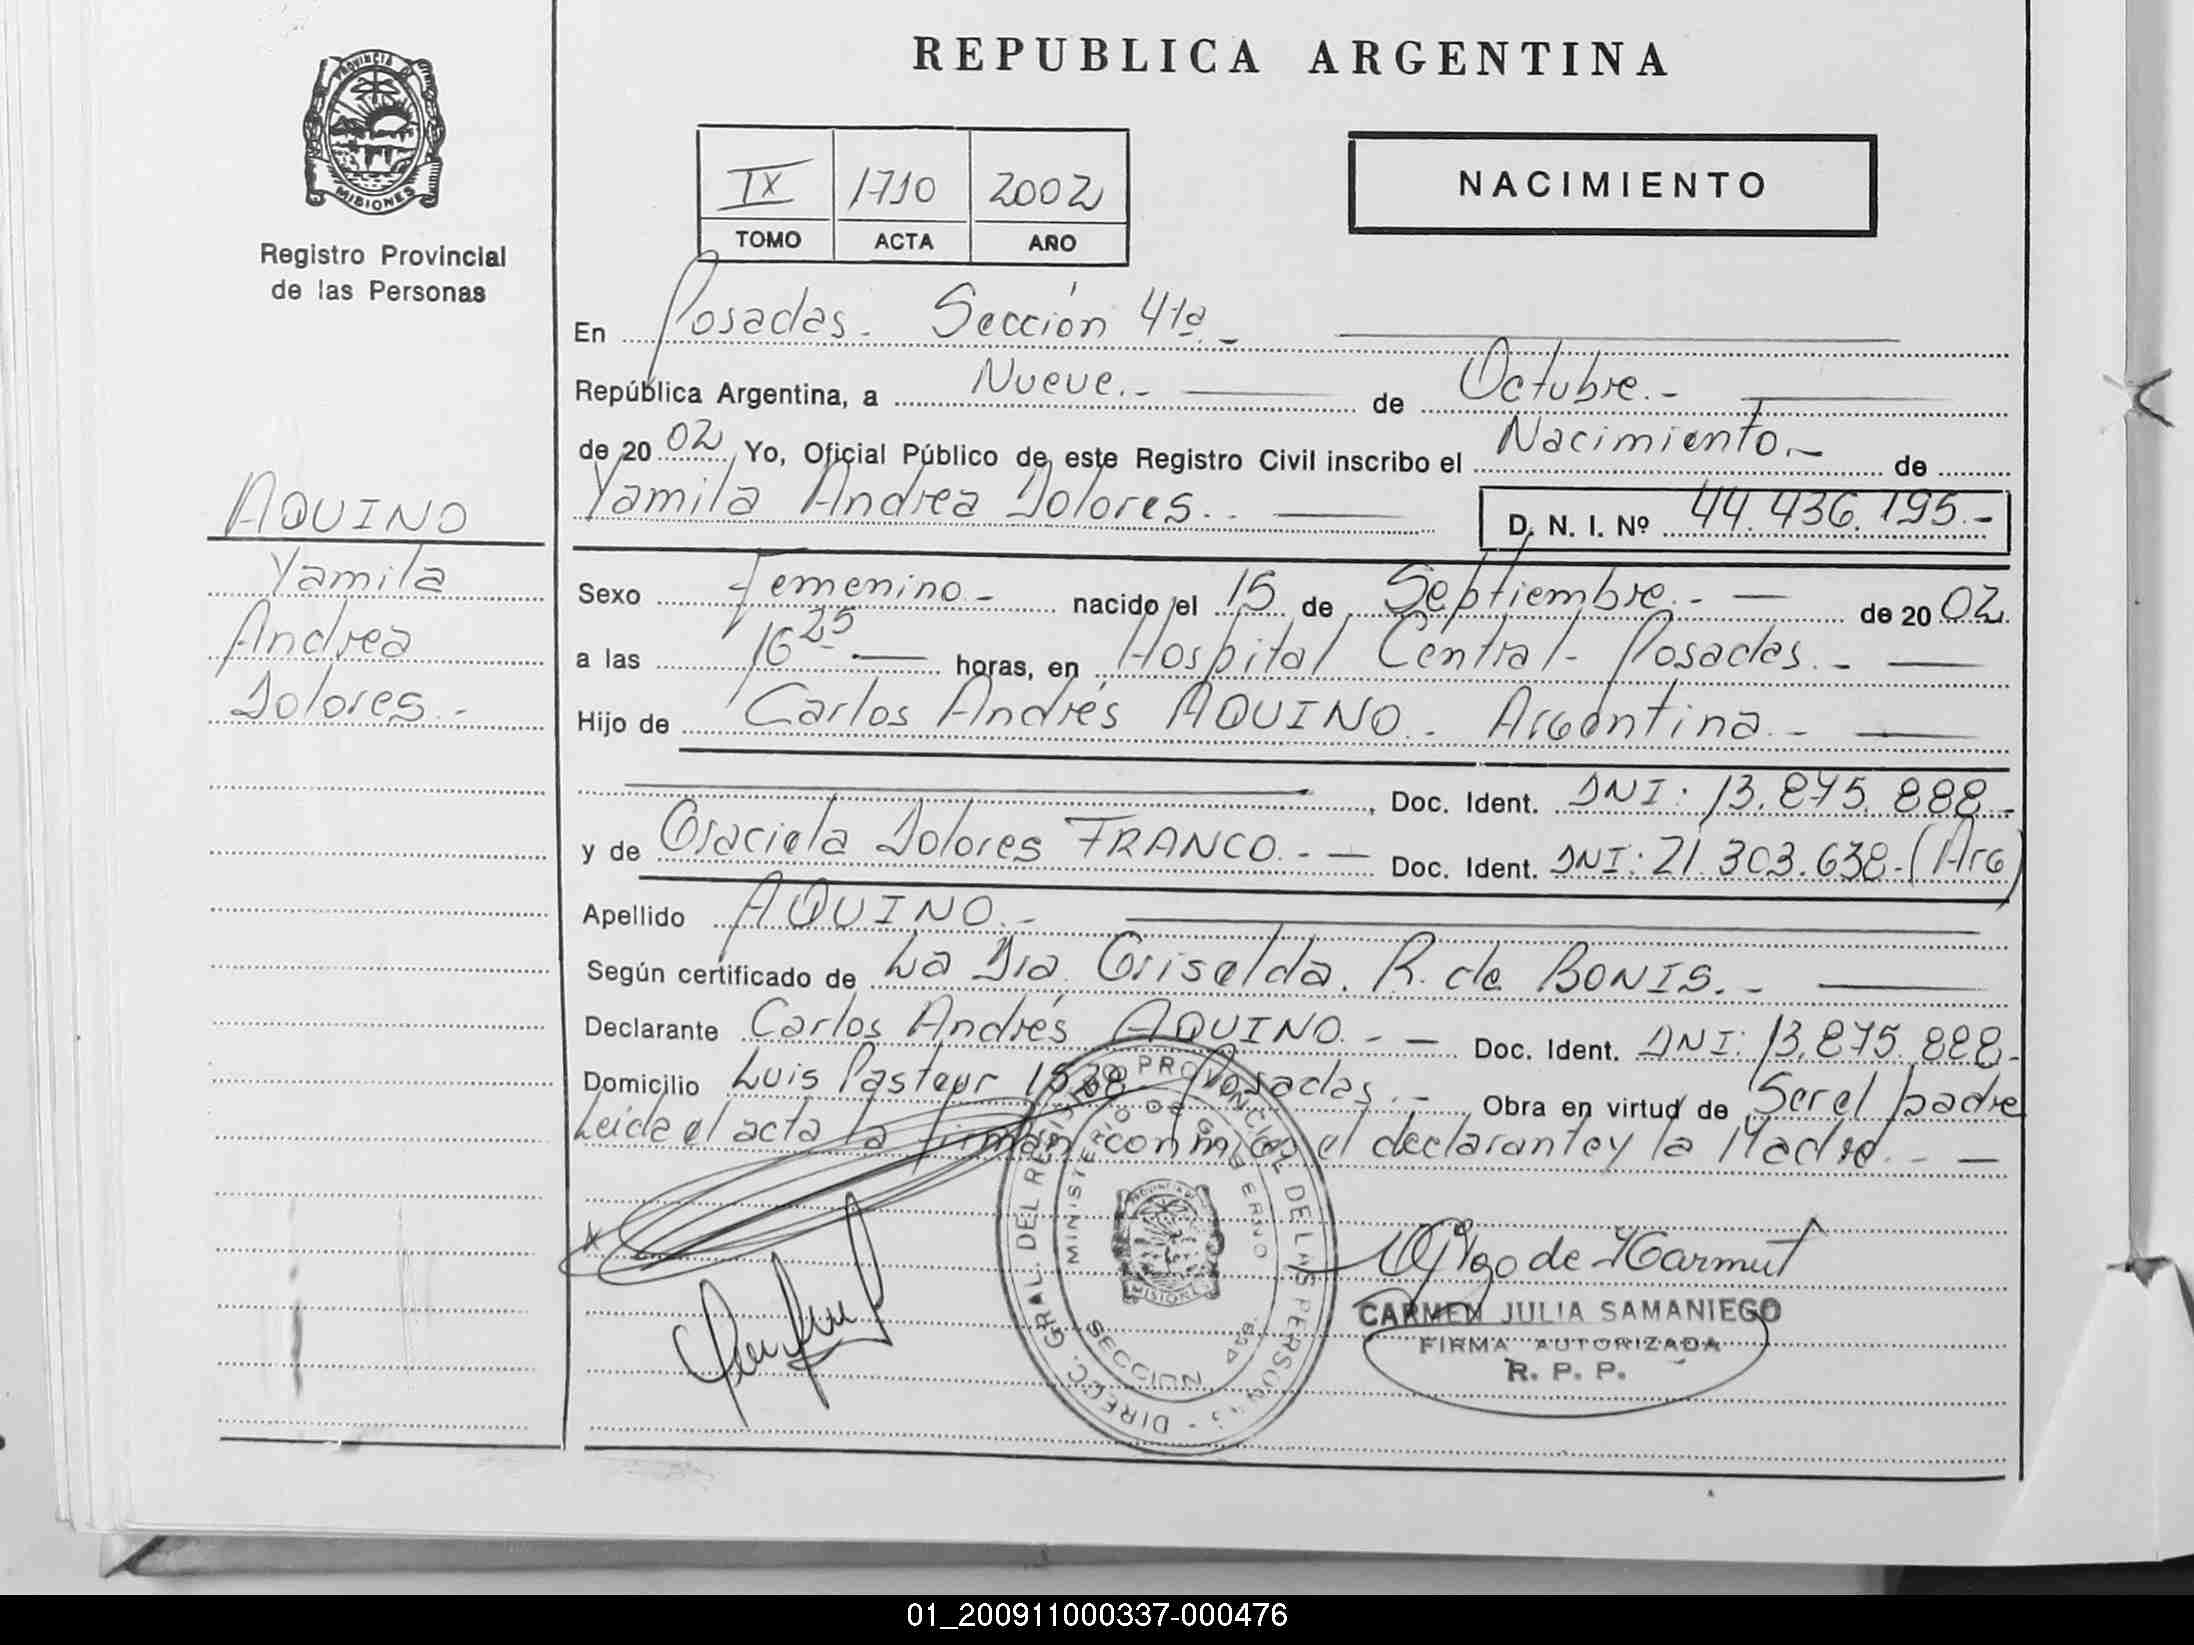 REPUBLICA ARGENTINA
PROVINCIA DE
MISIONES
Registro Provincial
de las Personas
IX 1710 2002
TOMO ACTA AÑO
NACIMIENTO
En Posadas. Sección 4ta.-
República Argentina, a Nueve.- de Octubre.-
de 2002 Yo, Oficial Público de este Registro Civil inscribo el Nacimiento.- de
Yamila Andrea Dolores.- D. N. I. Nº 44.436.195.-
AQUINO
Yamila
Andrea
Dolores.-
Sexo Femenino.- nacido el 15 de Septiembre.- de 2002.
a las 16 25 horas, en Hospital Central- Posadas.-
Hijo de Carlos Andrés AQUINO.- Argentina.-
, Doc. Ident. DNI: 13.875.888.-
y de Graciela Dolores FRANCO.- Doc. Ident. DNI: 21.303.638.-(Arg)
Apellido AQUINO.-
Según certificado de La Dra. Griselda. R. de BONIS.-
Declarante Carlos Andrés AQUINO.- Doc. Ident. DNI: 13.875.888.-
Domicilio Luis Pasteur Posadas.- Obra en virtud de Ser el padre
Leida el acta la firman conmigo el declarante y la Madre.-
DIRECC. GRAL. DEL REGISTRO PROVINCIAL DE LAS PERSONAS
MINISTERIO DE GOBIERNO
SECCION 4ta
de Karmut
CARMEN JULIA SAMANIEGO
FIRMA AUTORIZADA
R. P. P.
01_200911000337-000476